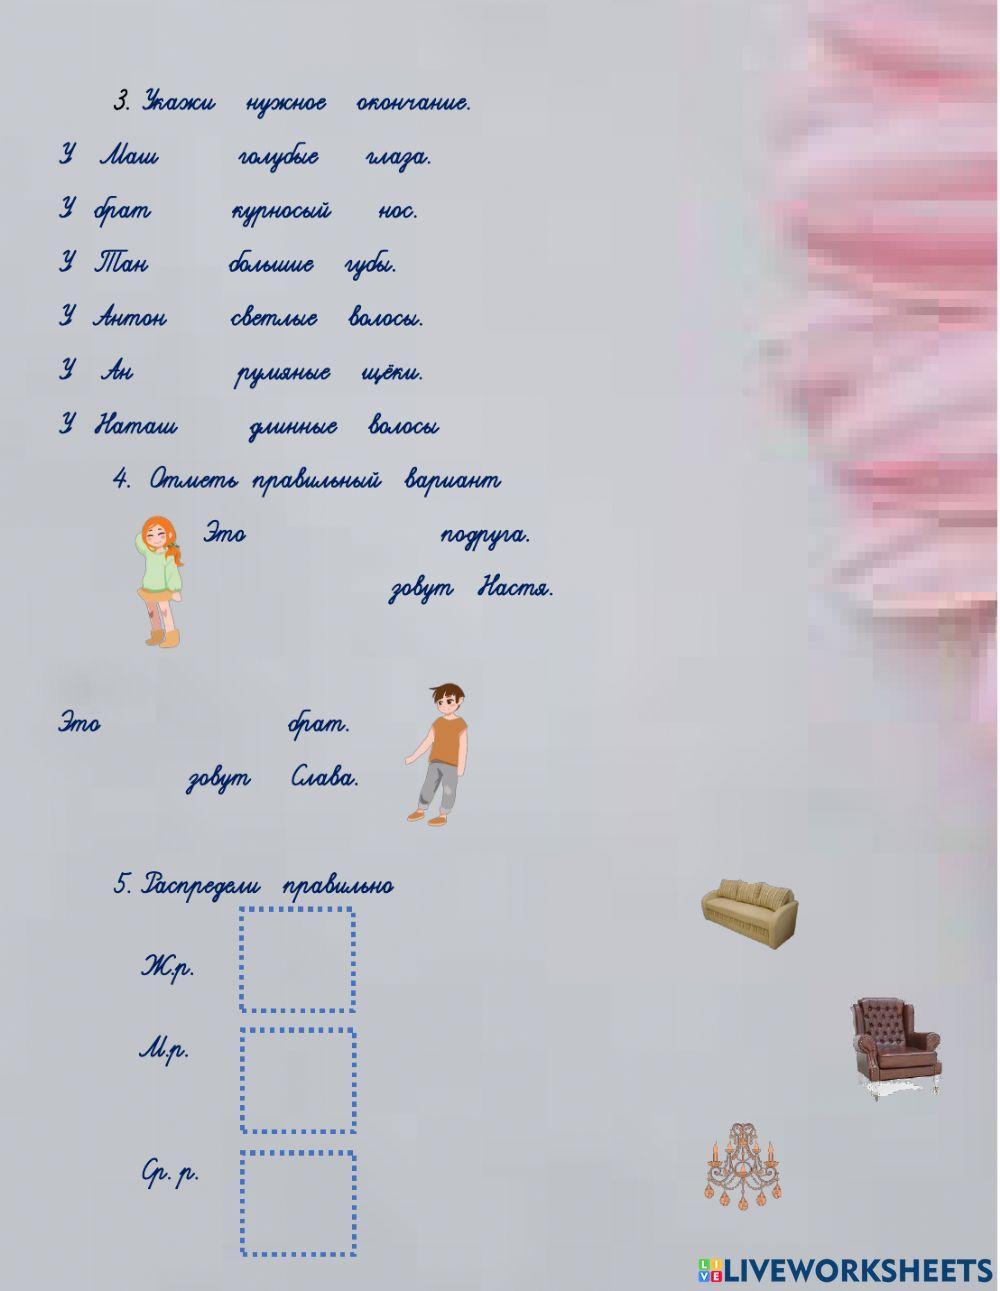 3. Укажи нужное окончание.
У Маш голубые глаза.
У брат курносый нос.
У Тан большие губы.
У Антон светлые волосы.
У Ан румяные щёки.
У Наташ длинные волосы
4. Отметь правильный вариант
Это подруга.
зовут Настя.
Это брат.
зовут Слава.
5. Распредели правильно
Ж.р.
М.р.
Ср. р.
LIVE LIVEWORKSHEETS